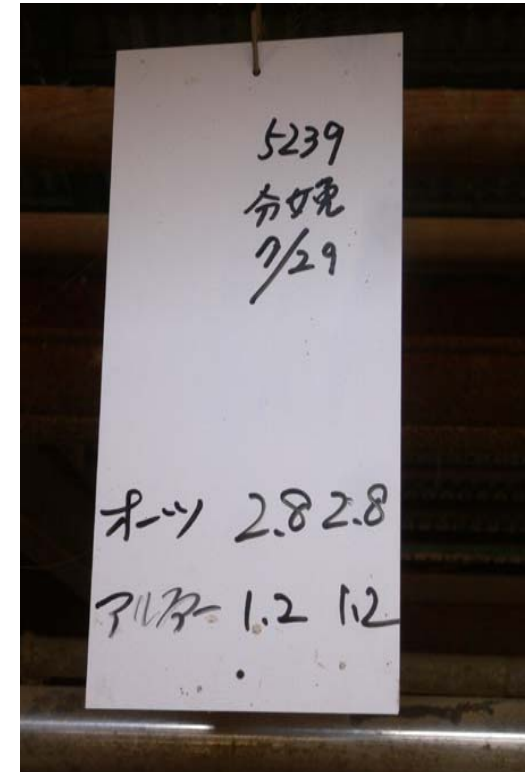 5239
分娩
7/29
オーツ 2.8 2.8
アルファー 1.2 1.2